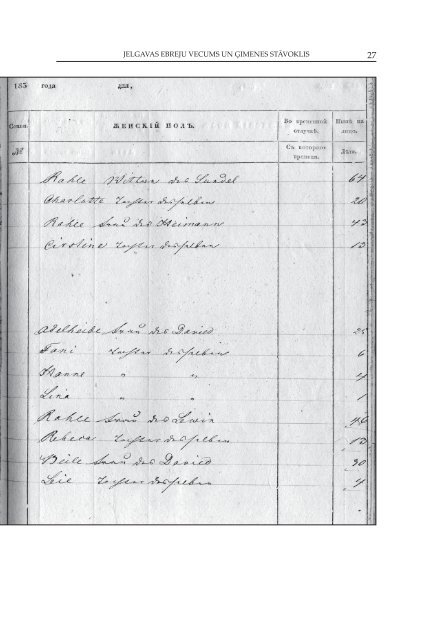 JELGAVAS EBREJU VECUMS UN ĢIMENES STĀVOKLIS 27
183 года дня,
Семьи. ЖЕНСКІЙ ПОЛЪ. Во временной отлучкѣ. Нынѣ на лицо.
№ Съ котораго времени. Лѣта.
Rahle Wittwe des Sundel 64
Charlotte Tochter desselben 20
Rahle Frau des Heimann 42
Caroline Tochter desselben 10
Adelheide Frau des David 25
Fani Tochter desselben 6
Hanne " " 4
Lina " " 1
Rahle Frau des Lewin 46
Rebecca Tochter desselben 10
Beile Frau des David 30
Leie Tochter desselben 4